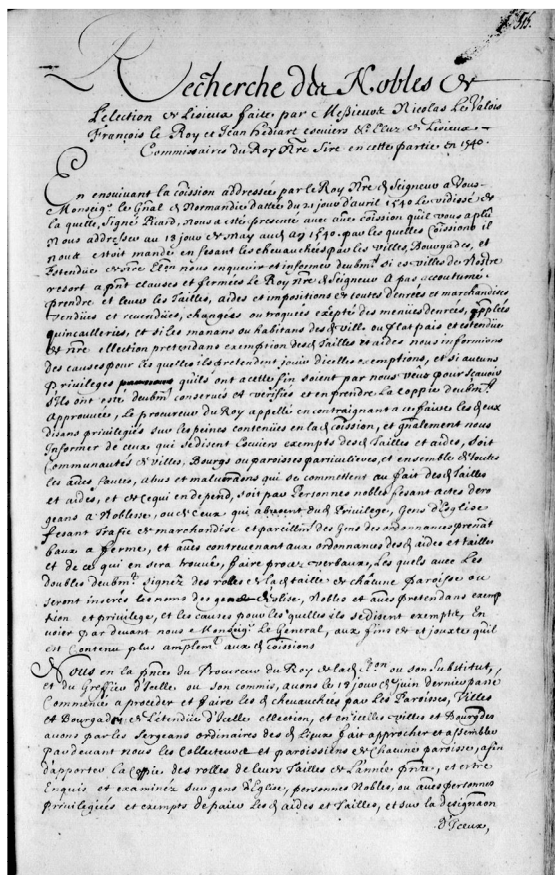 515.
Recherche des Nobles de
L'election de Lisieux faite par Messieurs Nicolas Le Valois
François le Roy et Jean hediart escuiers Esleuz de Lisieux
Commissaires du Roy nre Sire en cette partie en 1540.
En ensuivant la coission addressée par le Roy nre d. Seigneur a Vous
Monseigr. le gnal de Normandie dattée du 21 jour d'avril 1540 Le vidissé de
la quelle, signé Picard, nous a esté presenté avec autre coission quil vous a plu
nous addresser au 18 jour de May aud. an 1540. par les quelles Coissions il
nous estoit mandé en fesant les chevauchées par les villes, Bourgades, et
Estendue de vire Eleon nous enquerir et informer deubmt. si es villes de Nostre
resort a pnt clauses et fermées Le Roy nre d. Seigneur a pas accoutumé
prendre et lever les Tailles, aides et impositions de toutes denrées et marchandises
vendües et revendües, changées ou troquées exepté des menües denrées, appellés
quincailleries, et si les manans ou habitans desd. ville ou plat pais et estendüe
de nre ellection pretendans exemption desd. Tailles et aides nous informions
des causes pour les quelles ils pretendent jouir dicelles exemptions, et si aucuns
Privileges quils ont a cette fin soient par nous veus pour scavoir
s'ils ont esté deubmt. conservés et verifiés et en prendre La Coppie deubmt.
Approuvée, Le procureur du Roy appellé en contraignant a ce faire les d. eux
disans privilegiés sur les peines contenües en lad. coission, et egalement nous
Informer de ceux qui se disent Escuiers exempts desd. Tailles et aides, soit
Communautés de villes, Bourgs ou paroisses particulieres, et ensemble de toutes
les aides, fautes, abus et malversaons qui se commettent au fait desd. Tailles
et aides, et de ce qui en depend, soit par Personnes nobles fesant actes dero
geans a Noblesse, ou de Ceux qui abusent dud. Privilege, Gens d'Eglise
fesant Trafic de marchandise et pareillemt. des Gens des ordonnances prenant
baux a ferme, et autres contrevenant aux ordonnances desd. aides et tailles
et de ce qui en sera trouvé, faire procez verbaux, Les quels avec Les
doubles deubmt. signez des rolles de lad. taille de chacune paroisse ou
seront inserés les noms des gens d'Eglise, Nobles et autres pretendans exemp
tion et privilege, et les causes pour les quelles ils se disent exempts, En
voier par devant nous Monseigr. Le General, aux fins de et jouxte quil
est contenu plus amplemt. aux d. coissions
Nous en la pnce du Procureur du Roy de lad. Eleon ou son Substitut,
et du Greffier d'Icelle ou son commis, avons le 18 jour de Juin dernier passé
Commencé a proceder et faire les d. chevauchées par Les Paroisses, Villes
et Bourgades de L'etendüe d'Icelle ellection, et en icelles villes et Bourgdes
avons par les sergeans ordinaires des d. Lieux fait approcher et assembler
Par devant nous les Collecteurs et paroissiens de Chacune paroisse, afin
d'apporter la Coppie des rolles de leurs Tailles de L'année pnte, et estre
Enquis et examinez sur gens d'Eglise, personnes Nobles, ou autres personnes
privilegiées et exempts de paier Les d. aides et Tailles, et sur la designaon
d'Iceux,